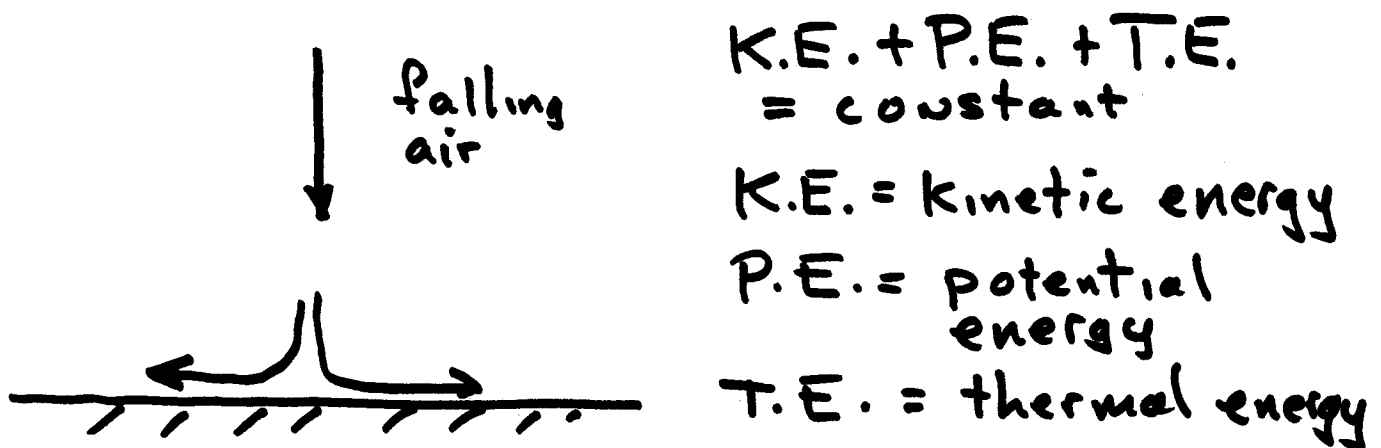 falling
air
K.E. + P.E. + T.E.
= constant
K.E. = kinetic energy
P.E. = potential
energy
T.E. = thermal energy